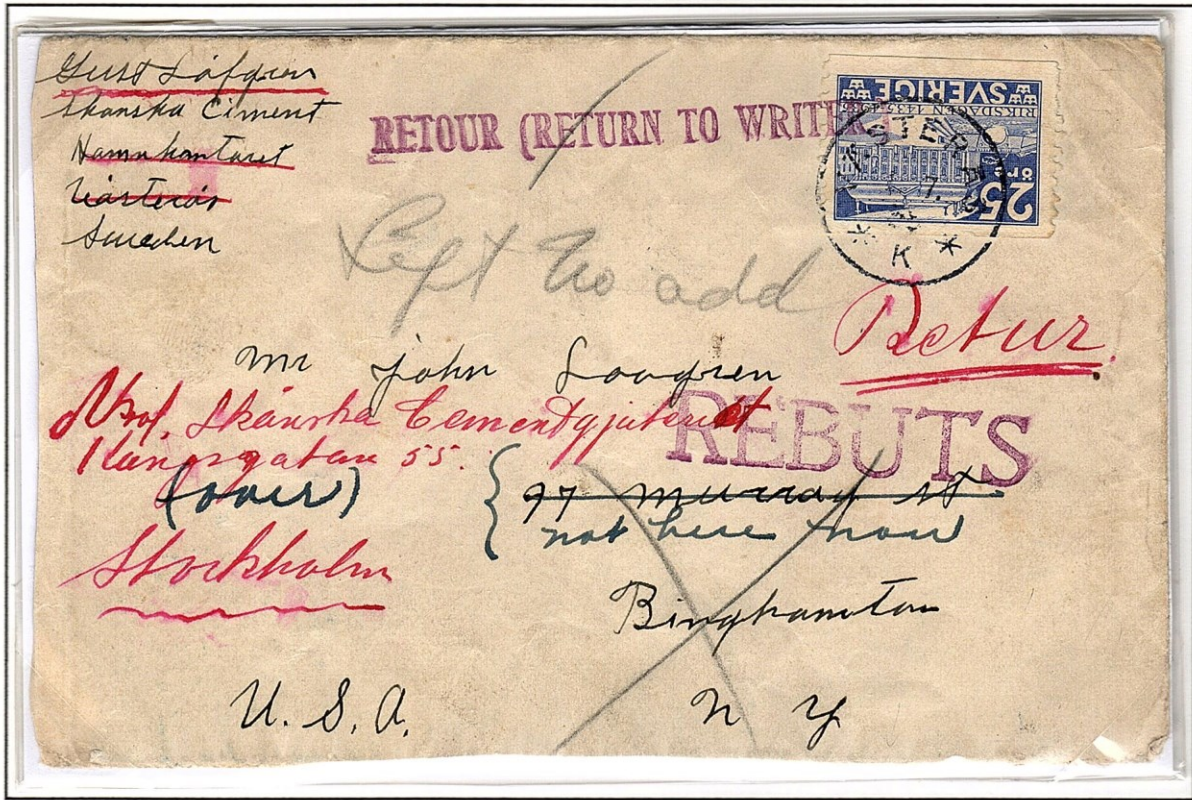 Gust Löfgren
Skånska Ciment
Hamnkontoret
Västerås
Sweden
RETOUR (RETURN TO WRITER)
SVERIGE
RIKSDAGEN
25 öre
VÄSTERÅS
7.
* K *
Left no add
Retur.
Mr John Lovgren
Skånska Cementgjuteriet
REBUTS
Kungsgatan 55.
(over)
97 Murray St.
not here now
Stockholm
Binghamton
U. S. A.
N Y